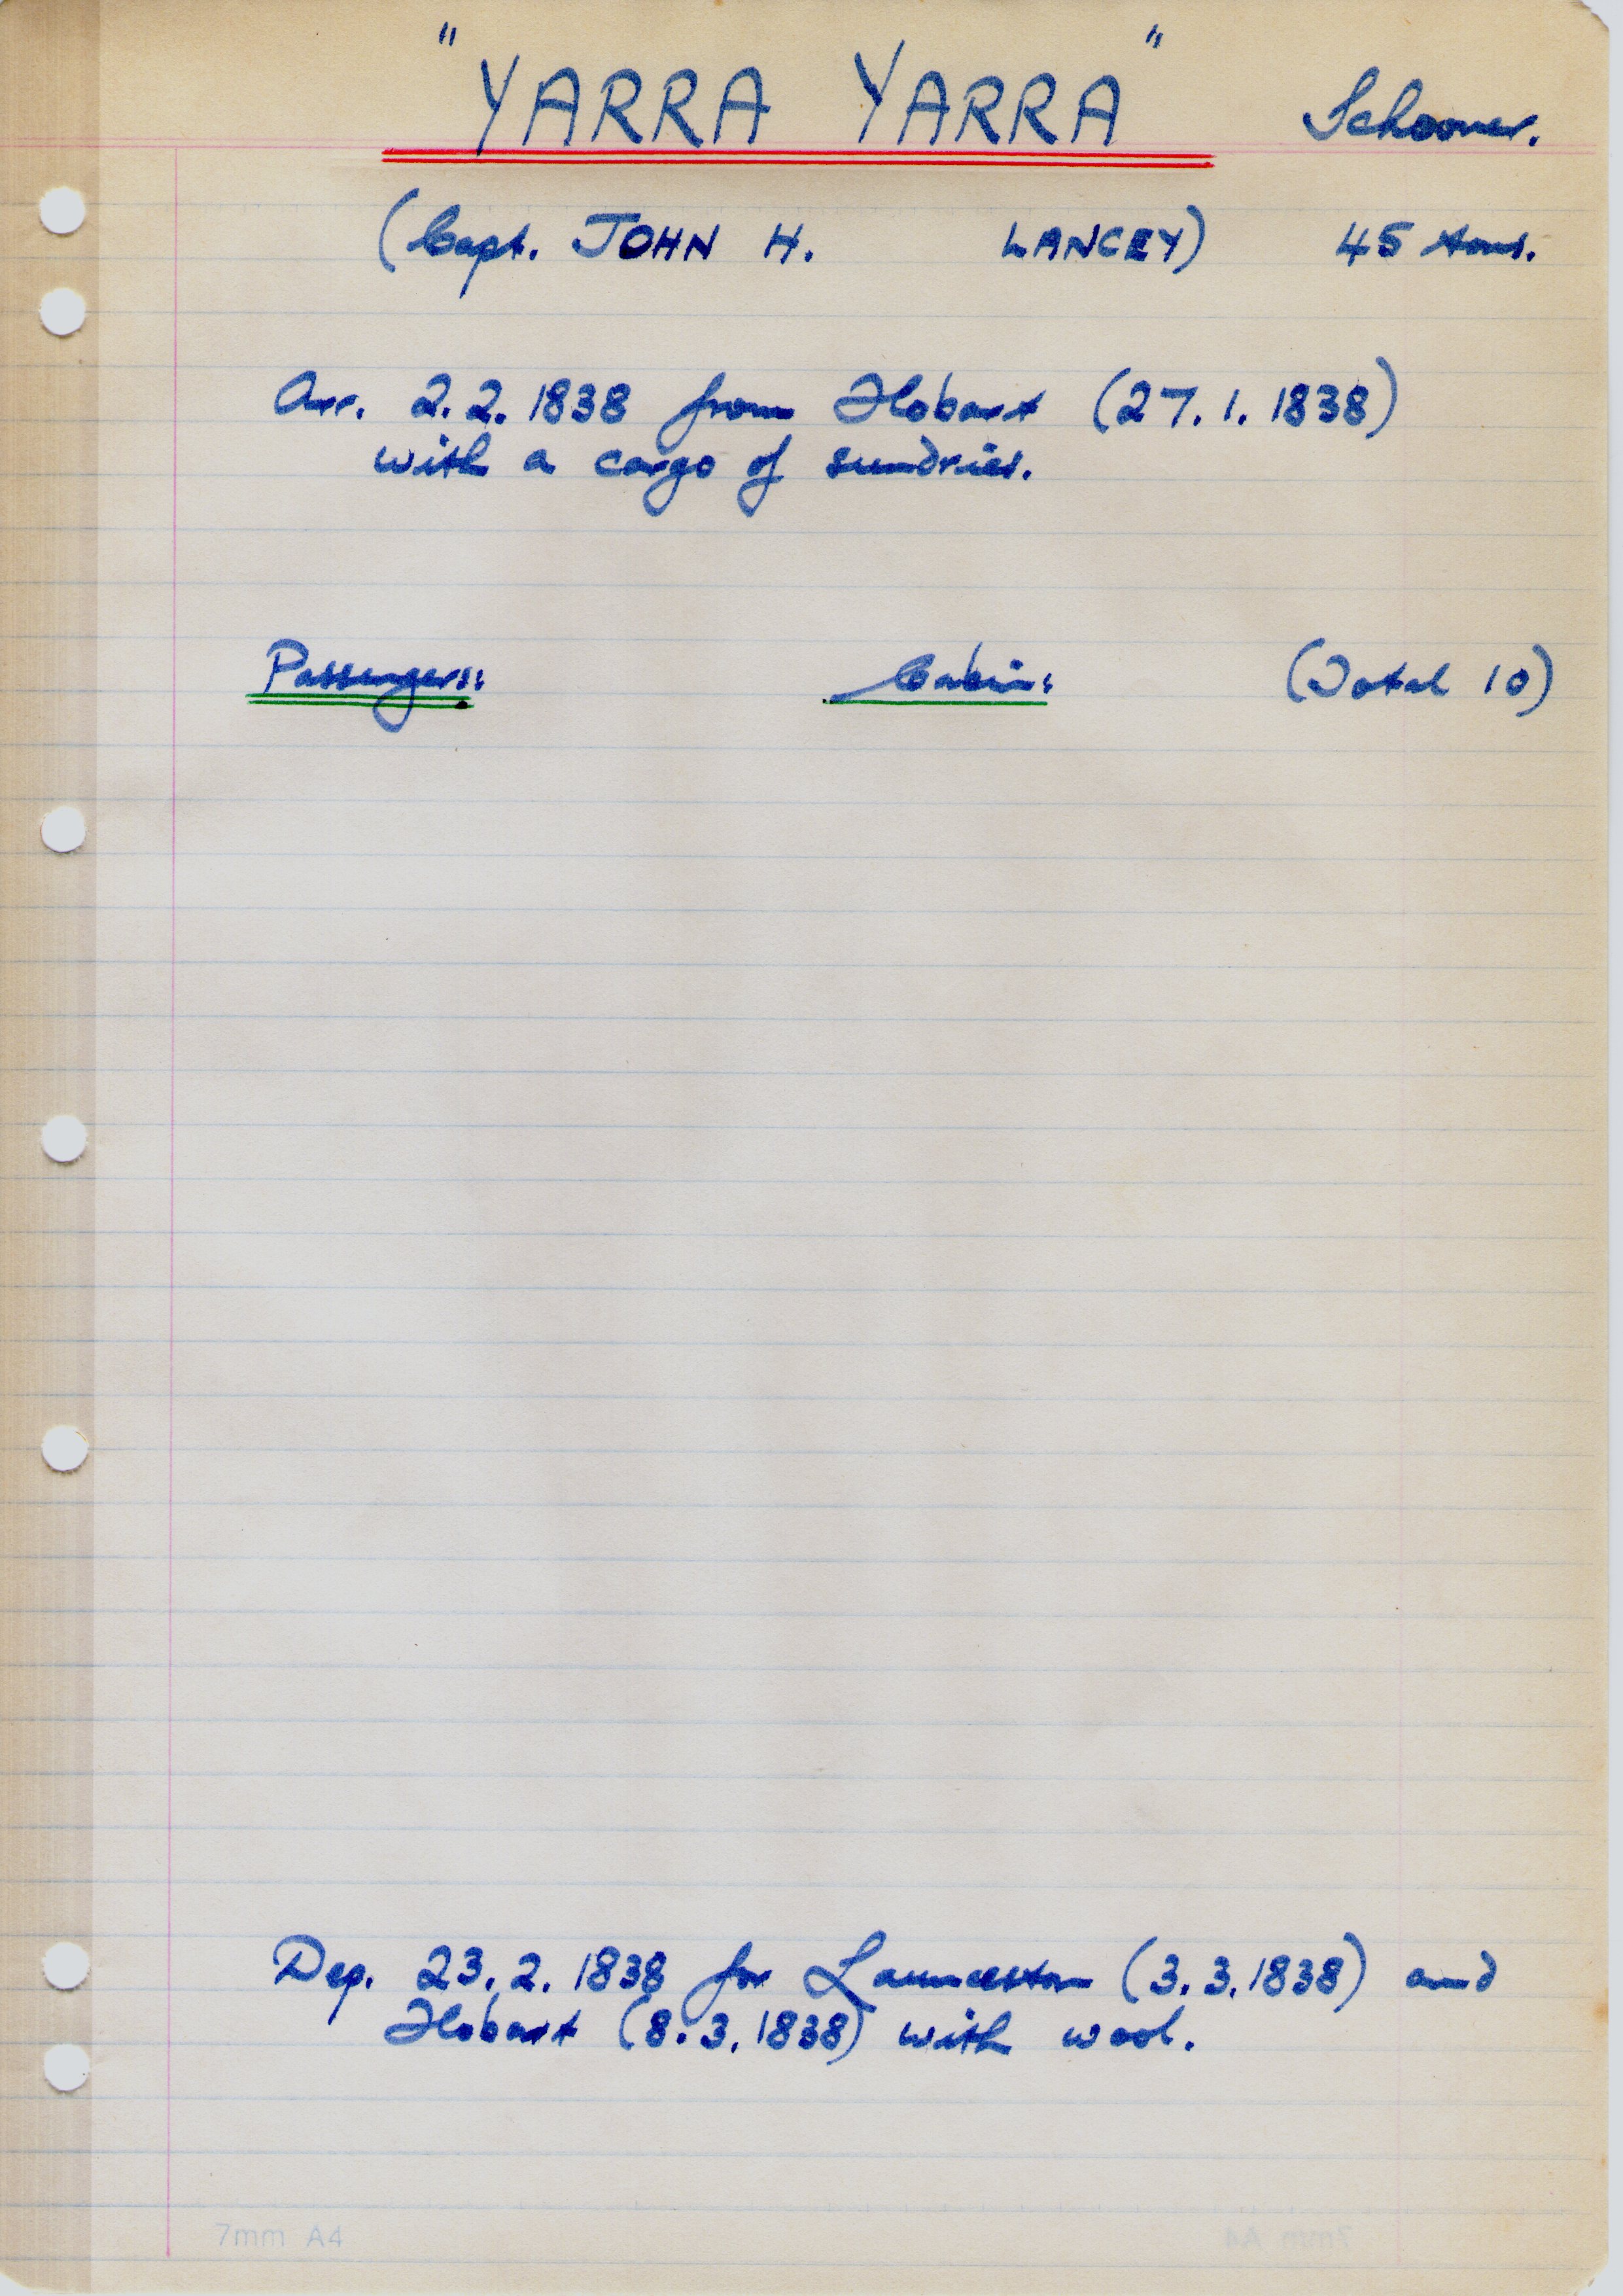 "YARRA YARRA" Schooner.
(Capt. JOHN H. LANCEY) 45 tons.
Arr. 2.2.1838 from Hobart (27.1.1838)
with a cargo of sundries.
Passengers: Cabin: (Total 10)
Dep. 23.2.1838 for Launceston (3.3.1838) and
Hobart (8.3.1838) with wool.
7mm A4